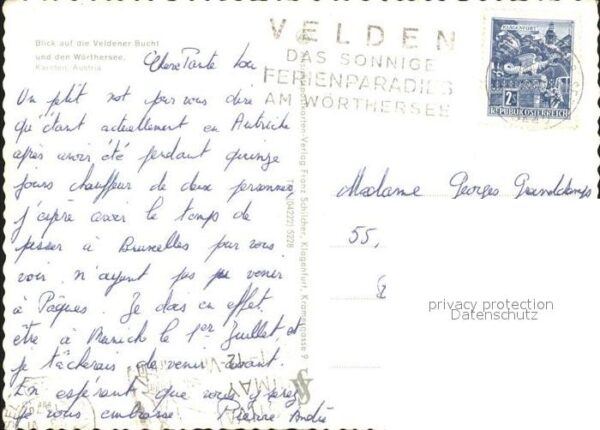 Blick auf die Veldener Bucht
und den Wörthersee.
Kärnten, Austria
VELDEN
DAS SONNIGE
FERIENPARADIES
AM WÖRTHERSEE
KLAGENFURT
2
REPUBLIK ÖSTERREICH
Chère Tante
Un petit mot pour vous dire
qu'étant actuellement en Autriche
après avoir été pendant quinze
jours chauffeur de deux personnes
j'espère avoir le temps de
passer à Bruxelles pour vous
voir, n'ayant pas pu venir
à Pâques. Je dois en effet
être à Munich le 1er Juillet, et
je tâcherais de venir avant.
En espérant que vous y serez
je vous embrasse. Pierre André
Kunstkarten-Verlag Franz Schilcher, Klagenfurt, Kramergasse 9
(04222) 5228
Madame Georges Grandchamps
55,
privacy protection
Datenschutz